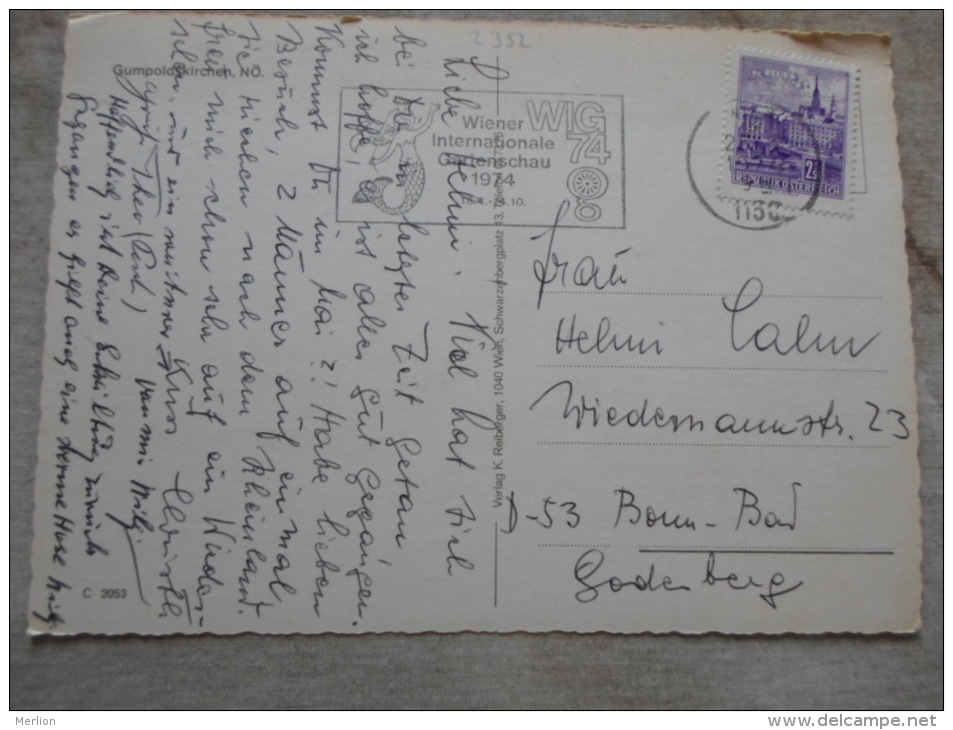 2352
Gumpoldskirchen, NÖ.
Wiener
Internationale
Gartenschau
1974
18.4.-14.10.
WIG
74
2S
REPUBLIK ÖSTERREICH
1150
Liebe Helmi. Viel hat sich
bei in letzter Zeit getan
ich hoffe, ist alles gut gegangen.
Kommst Du im Mai?! Habe lieben
Besuch, 2 Männer auf einmal
die ziehen nach dem Rheinland.
Freu mich schon sehr auf ein Wieder-
sehen. und ein weiterer Kurs
Hoffentlich ist Deine zurück
gegangen es grüßt auch eine
Verlag K. Reiberger, 1040 Wien, Schwarzenbergplatz 13, Telefon
Frau
Helmi Calm
Wiedemannstr. 23
D-53 Bonn-Bad
Godesberg
C 2053
Merlion
http://www.delcampe.net